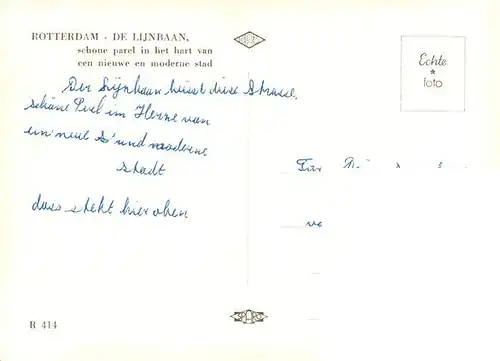 ROTTERDAM - DE LIJNBAAN,
schone parel in het hart van
een nieuwe en moderne stad
Echte
*
foto
Der Lijnbaan heisst diese Strasse,
schöne Perl im Herne van
ein neue s' und moderne
stadt
dass steht hier oben
Für
R 414